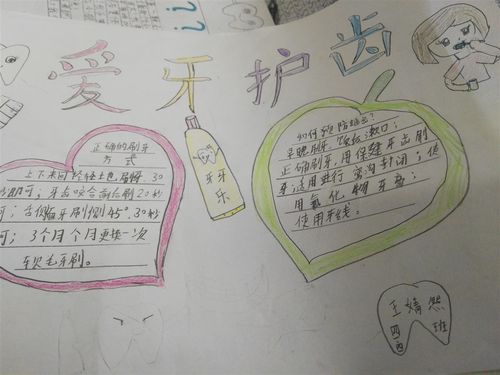 爱牙护齿
正确的刷牙
方式
上下来回轻轻土也刷够30
秒即可；牙齿咬合面后刷20秒
可；舌侧面牙刷倾45°，30秒
可；3个月个月更换一次
软毛牙刷。
牙牙
乐
如何预防蛀牙？
早晚刷牙，饭后漱口；
正确刷牙，用保健牙齿刷
牙；适用进行窝沟封闭；使
用氟化物牙膏；
使用牙线。
王婧熙
四 班